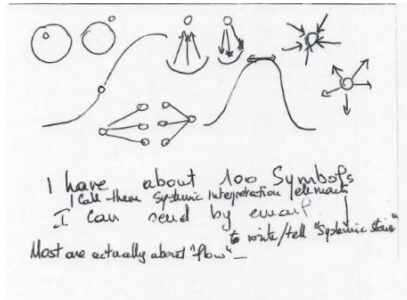 I have about 100 Symbols
I call them Systemic Interpretation elements
I can send by email
to write/tell "Systemic stories"
Most are actually about "flow" —